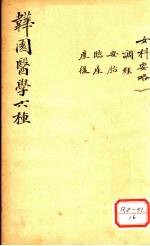 韡園醫學六種
女科要略一
調經
安胎
臨產
產後
R2-51
16